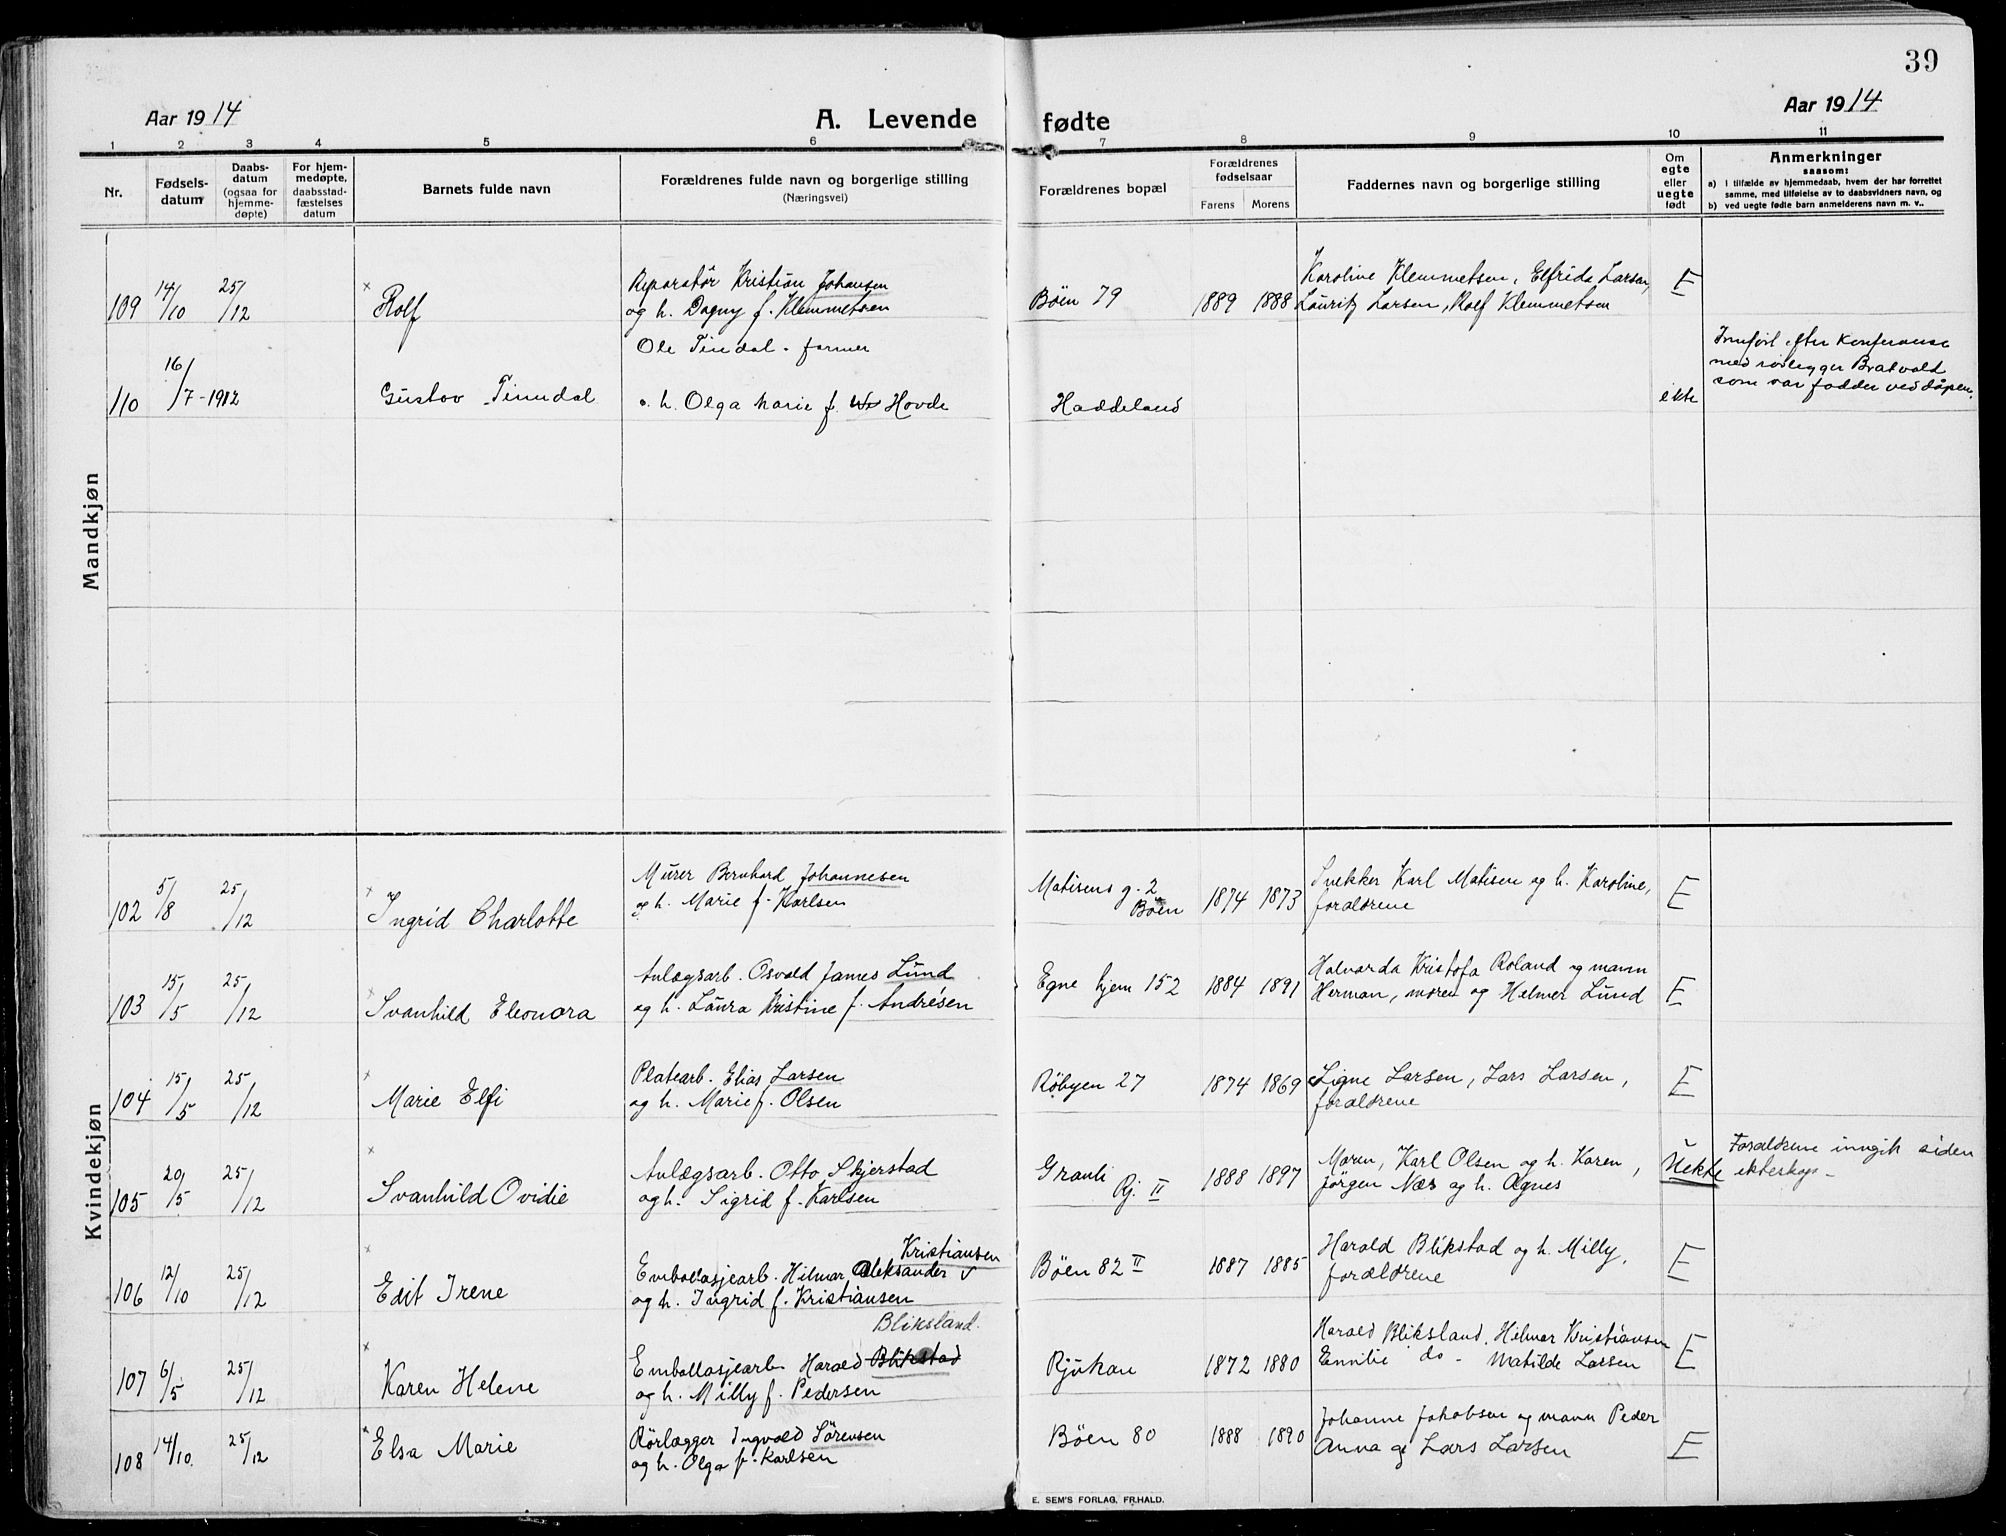 39
Aar 1914
A. Levende fødte
Aar 1914
1 2 3 4 5 6 7 8 9 10 11
Nr.
Fødsels-
datum
Daabs-
datum
(ogsaa for
hjemme-
døpte)
For hjem-
medøpte,
daabsstad-
fæstelses
datum
Barnets fulde navn
Forældrenes fulde navn og borgerlige stilling
(Næringsvei)
Forældrenes bopæl
Forældrenes
fødselsaar
Farens Morens
Faddernes navn og borgerlige stilling
Om
egte
eller
uegte
født
Anmerkninger
saasom:
a) i tilfælde av hjemmedaab, hvem der har forrettet
samme, med tilføielse av to daabsvidners navn, og
b) ved uegte fødte barn anmelderens navn m. v..
Mandkjøn
109 14/10 25/12 Rolf
Reparatør Kristian Johansen
og h. Dagny f. Klemmetsen
Bøen 79 1889 1888
Karoline Klemmetsen, Elfrida Larsen,
Lauritz Larsen, Rolf Klemmetsen
E
110 16/7-1912 Gustav Tinndal
Ole Tindal - former
o. h. Olga Marie f. Hovde
Haddeland
ekte
Innført efter konferanse
med rørlegger Bratvold
som var fadder ved dåpen.
Kvindekjøn
102 5/8 25/12 Ingrid Charlotte
Murer Bernhard Johannesen
og h. Marie f. Karlsen
Matisens g. 2
Bøen
1874 1873
Snekker Karl Matisen og h. Karoline,
forældrene
E
103 15/5 25/12 Svanhild Eleonora
Anlægsarb. Osvald James Lund
og h. Laura Kristine f. Andrésen
Egne hjem 152 1884 1891
Halvarda Kristofa Roland og mann
Herman, moren og Helmer Lund
E
104 15/5 25/12 Marie Elfi
Platearb. Elias Larsen
og h. Marie f. Olsen
Røbyen 27 1874 1869
Signe Larsen, Lars Larsen,
forældrene
E
105 20/5 25/12 Svanhild Ovidie
Anlægsarb. Otto Skjerstad
og h. Sigrid f. Karlsen
Granli
Rj. II
1888 1897
Moren, Karl Olsen og h. Karen,
Jørgen Næs og h. Agnes
Uekte
Forældrene inngik siden
ekteskap -
106 12/10 25/12 Edit Irene
Kristiansen
Emballasjearb. Hilmar Aleksander
og h. Ingrid f. Kristiansen
Bøen 82 II 1887 1885
Harald Blikstad og h. Milly,
forældrene
E
107 6/5 25/12 Karen Helene
Bliksland.
Emballasjearb. Harald Blikstad
og h. Milly f. Pedersen
Rjukan 1872 1880
Harald Bliksland, Hilmar Kristiansen
Emilie do - Matilde Larsen
E
108 14/10. 25/12 Elsa Marie
Rørlægger Ingvald Sørensen
og h. Olga f. Karlsen
Bøen 80 1888 1890
Johanne Jakobsen og mann Peder
Anna og Lars Larsen
E
E. SEM'S FORLAG, FR.HALD.